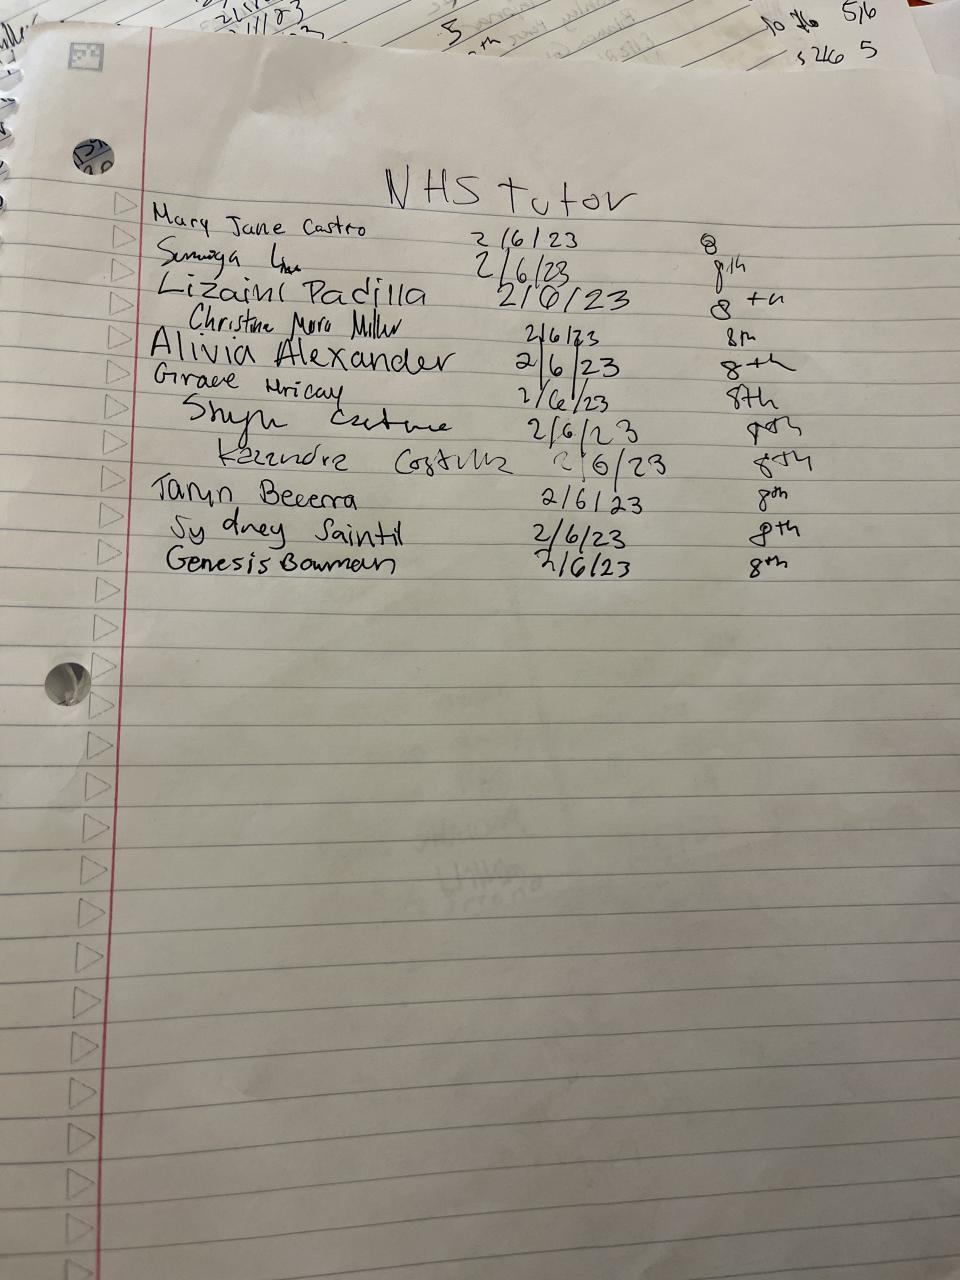 5/6
5
5
NHS Tutor
Mary Jane Castro 2/6/23 8
2/6/23 8th
Padilla 2/6/23 8th
Christine Mora Miller 2/6/23 8th
Alivia Alexander 2/6/23 8th
Grace 2/6/23 8th
2/6/23 8th
Kazandra 2/6/23 8th
Taryn Becerra 2/6/23 8th
Sydney Saintil 2/6/23 8th
Genesis Bowman 2/6/23 8th